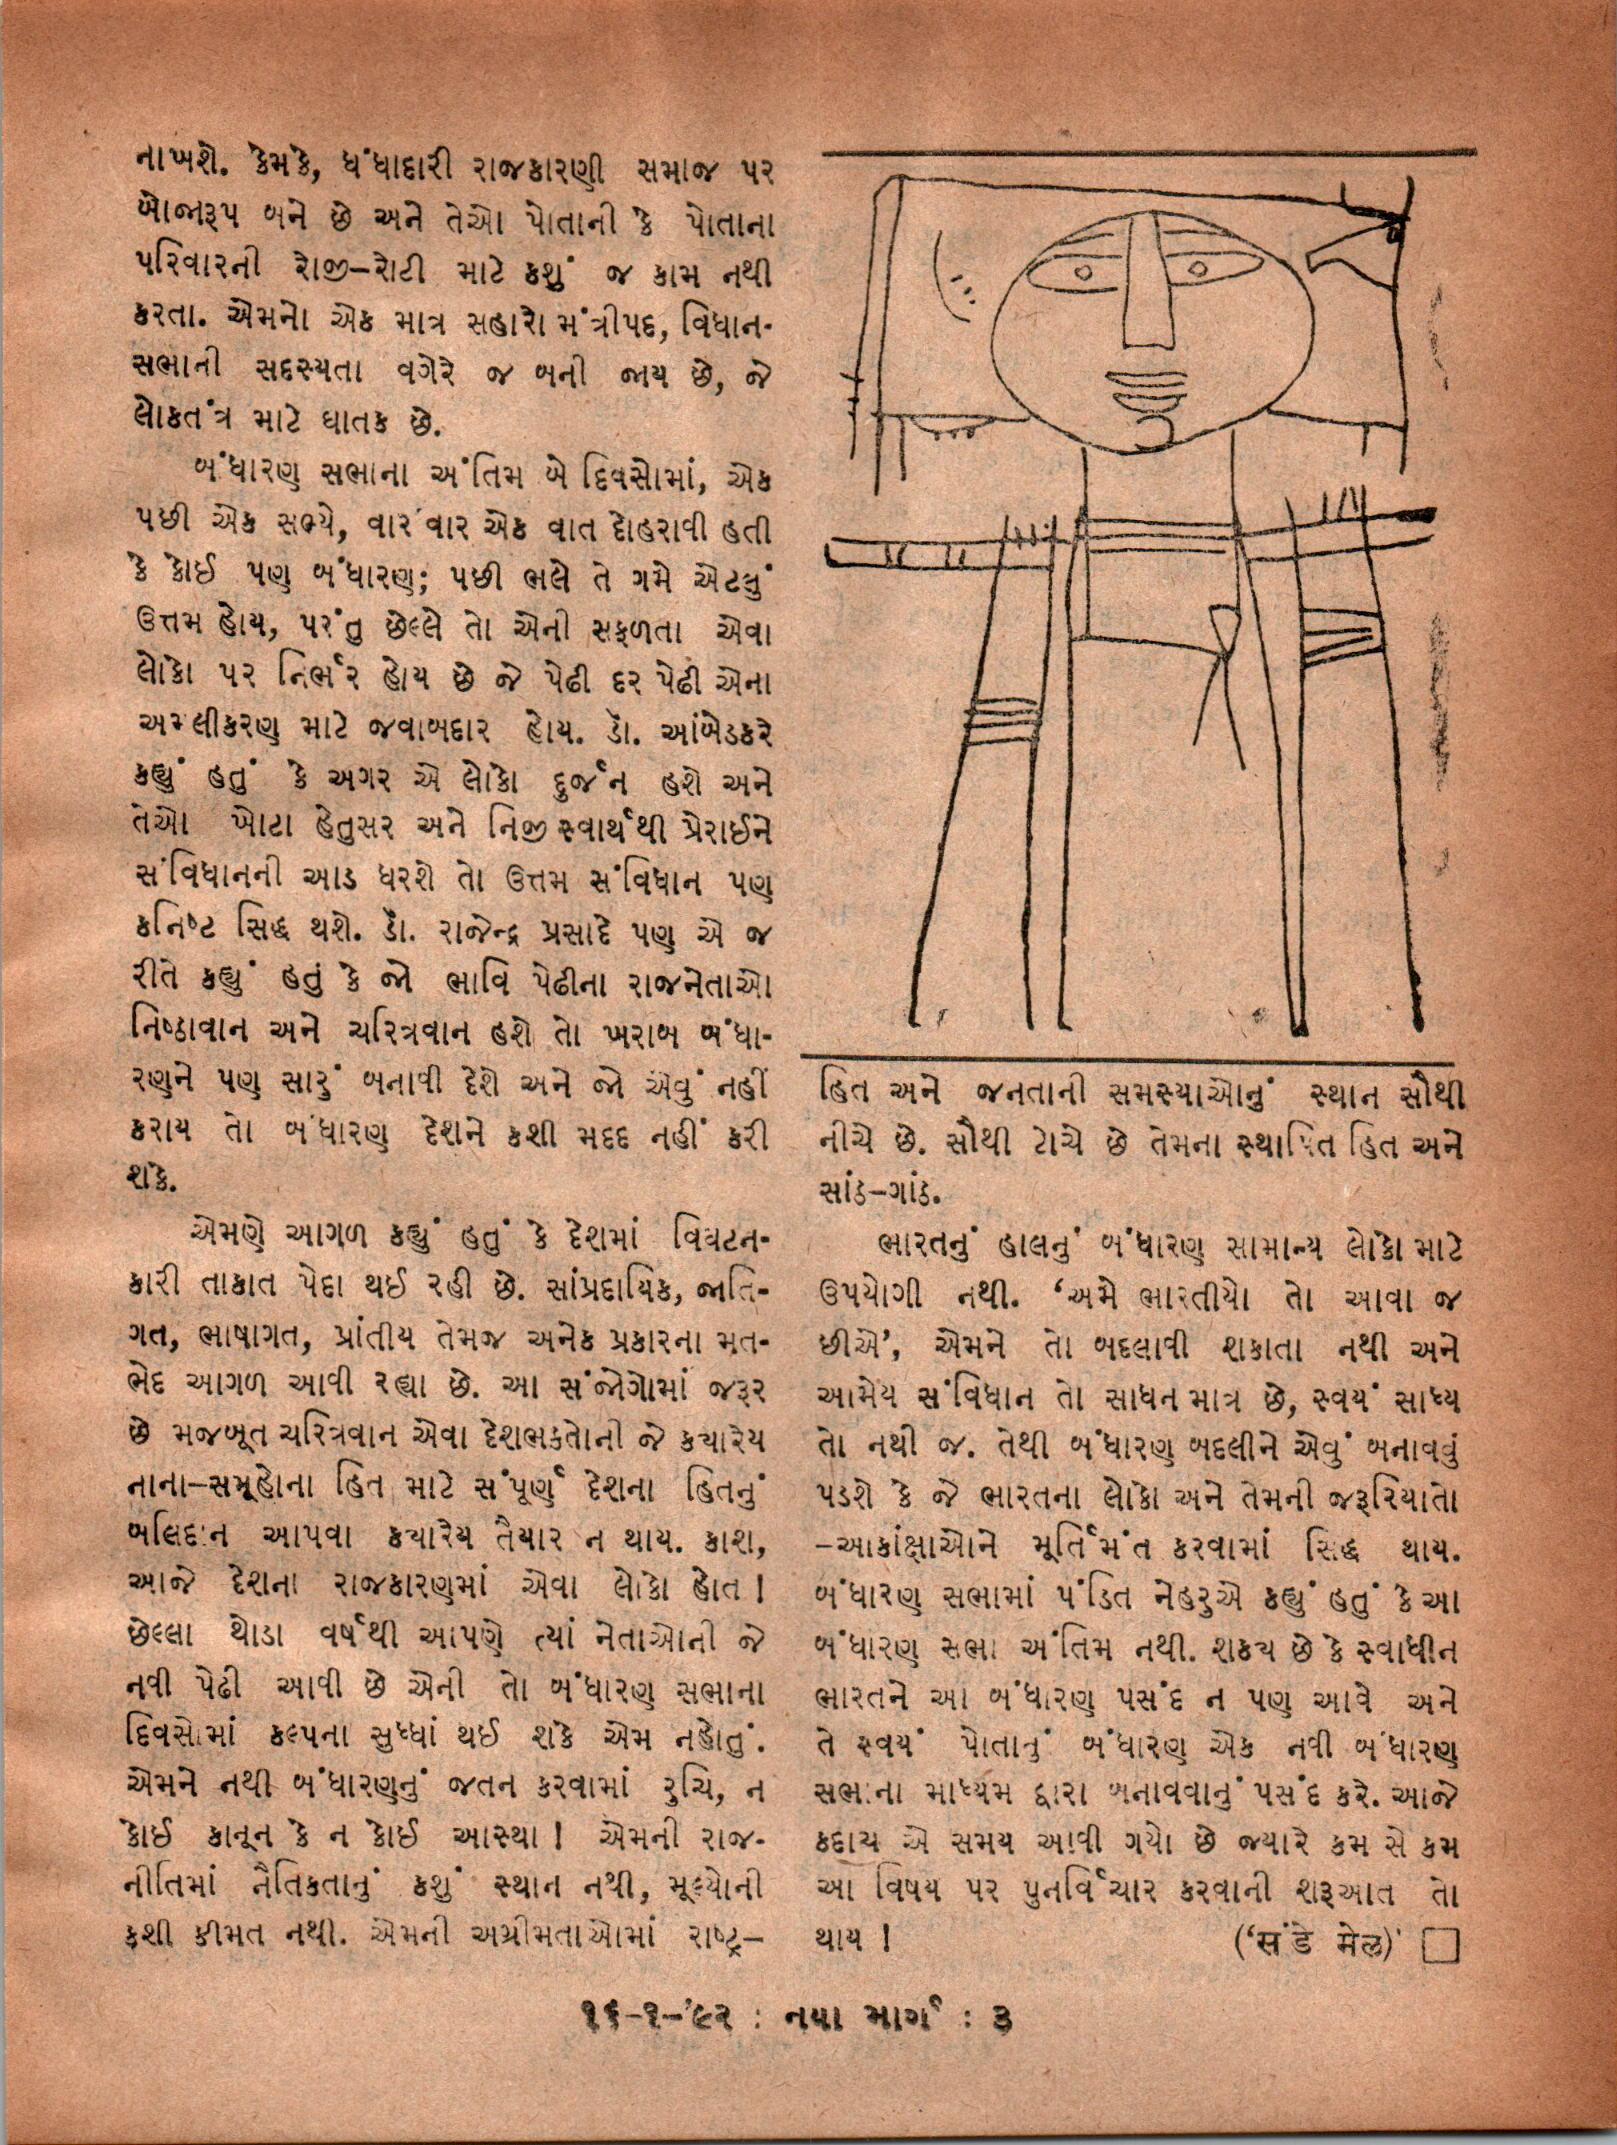 નાખશે. કેમકે, ધંધાદારી રાજકારણી સમાજ પર
બોજારૂપ બને છે અને તેઓ પોતાની કે પોતાના
પરિવારની રોજી–રોટી માટે કશું જ કામ નથી
કરતા. એમનો એક માત્ર સહારો મંત્રીપદ, વિધાન-
સભાની સદસ્યતા વગેરે જ બની જાય છે, જે
લોકતંત્ર માટે ઘાતક છે.
બંધારણ સભાના અંતિમ બે દિવસોમાં, એક
પછી એક સભ્યે, વારંવાર એક વાત દોહરાવી હતી
કે કોઈ પણ બંધારણ; પછી ભલે તે ગમે એટલું
ઉત્તમ હોય, પરંતુ છેલ્લે તો એની સફળતા એવા
લોકો પર નિર્ભર હોય છે જે પેઢી દર પેઢી એના
અમલીકરણ માટે જવાબદાર હોય. ડૉ. આંબેડકરે
કહ્યું હતું કે અગર એ લોકો દુર્જન હશે અને
તેઓ ખોટા હેતુસર અને નિજી સ્વાર્થથી પ્રેરાઈને
સંવિધાનની આડ ધરશે તો ઉત્તમ સંવિધાન પણ
કનિષ્ટ સિદ્ધ થશે. ડૉ. રાજેન્દ્ર પ્રસાદે પણ એ જ
રીતે કહ્યું હતું કે જો ભાવિ પેઢીના રાજનેતાઓ
નિષ્ઠાવાન અને ચરિત્રવાન હશે તો ખરાબ બંધા-
રણને પણ સારું બનાવી દેશે અને જો એવું નહીં
કરાય તો બંધારણ દેશને કશી મદદ નહીં કરી
શકે.
એમણે આગળ કહ્યું હતું કે દેશમાં વિઘટન-
કારી તાકાત પેદા થઈ રહી છે. સાંપ્રદાયિક, જાતિ-
ગત, ભાષાગત, પ્રાંતીય તેમજ અનેક પ્રકારના મત-
ભેદ આગળ આવી રહ્યા છે. આ સંજોગોમાં જરૂર
છે મજબૂત ચરિત્રવાન એવા દેશભકતોની જે કયારેય
નાના–સમૂહોના હિત માટે સંપૂર્ણ દેશના હિતનું
બલિદાન આપવા કયારેય તૈયાર ન થાય. કાશ,
આજે દેશના રાજકારણમાં એવા લોકો હોત !
છેલ્લા થોડા વર્ષથી આપણે ત્યાં નેતાઓની જે
નવી પેઢી આવી છે એની તો બંધારણ સભાના
દિવસોમાં કલ્પના સુધ્ધાં થઈ શકે એમ નહોતું.
એમને નથી બંધારણનું જતન કરવામાં રુચિ, ન
કોઈ કાનૂન કે ન કોઈ આસ્થા ! એમની રાજ-
નીતિમાં નૈતિકતાનું કશું સ્થાન નથી, મૂલ્યોની
કશી કીમત નથી. એમની અગ્રીમતાઓમાં રાષ્ટ્ર–
હિત અને જનતાની સમસ્યાઓનું સ્થાન સૌથી
નીચે છે. સૌથી ટોચે છે તેમના સ્થાપિત હિત અને
સાંઠ–ગાંઠ.
ભારતનું હાલનું બંધારણ સામાન્ય લોકો માટે
ઉપયોગી નથી. ‘અમે ભારતીયો તો આવા જ
છીએ’, એમને તો બદલાવી શકાતા નથી અને
આમેય સંવિધાન તો સાધન માત્ર છે, સ્વયં સાધ્ય
તો નથી જ. તેથી બંધારણ બદલીને એવું બનાવવું
પડશે કે જે ભારતના લોકો અને તેમની જરૂરિયાતો
–આકાંક્ષાઓને મૂર્તિમંત કરવામાં સિદ્ધ થાય.
બંધારણ સભામાં પંડિત નેહરુએ કહ્યું હતું કે આ
બંધારણ સભા અંતિમ નથી. શકય છે કે સ્વાધીન
ભારતને આ બંધારણ પસંદ ન પણ આવે અને
તે સ્વયં પોતાનું બંધારણ એક નવી બંધારણ
સભાના માધ્યમ દ્વારા બનાવવાનું પસંદ કરે. આજે
કદાચ એ સમય આવી ગયો છે જ્યારે કમ સે કમ
આ વિષય પર પુનર્વિચાર કરવાની શરૂઆત તો
થાય ! (‘સંડે મેલ)’ □
૧૬-૧-’૯૨ : નયા માર્ગ : ૩